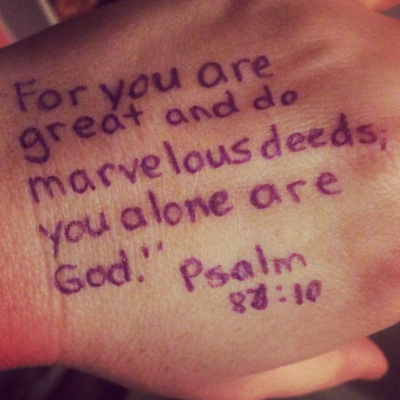 For you are
great and do
marvelous deeds;
you alone are
God."
Psalm
:10